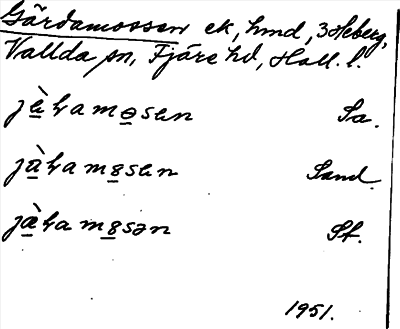 Gärdamossen ek, hmd, 3 Heberg,
Vallda sn, Fjäre hd, Hall. l.
jä̀ɥamɵsen Sa.
jà̱ɥam8sen Sand.
jæ̀ɥam8sən St.
1951.